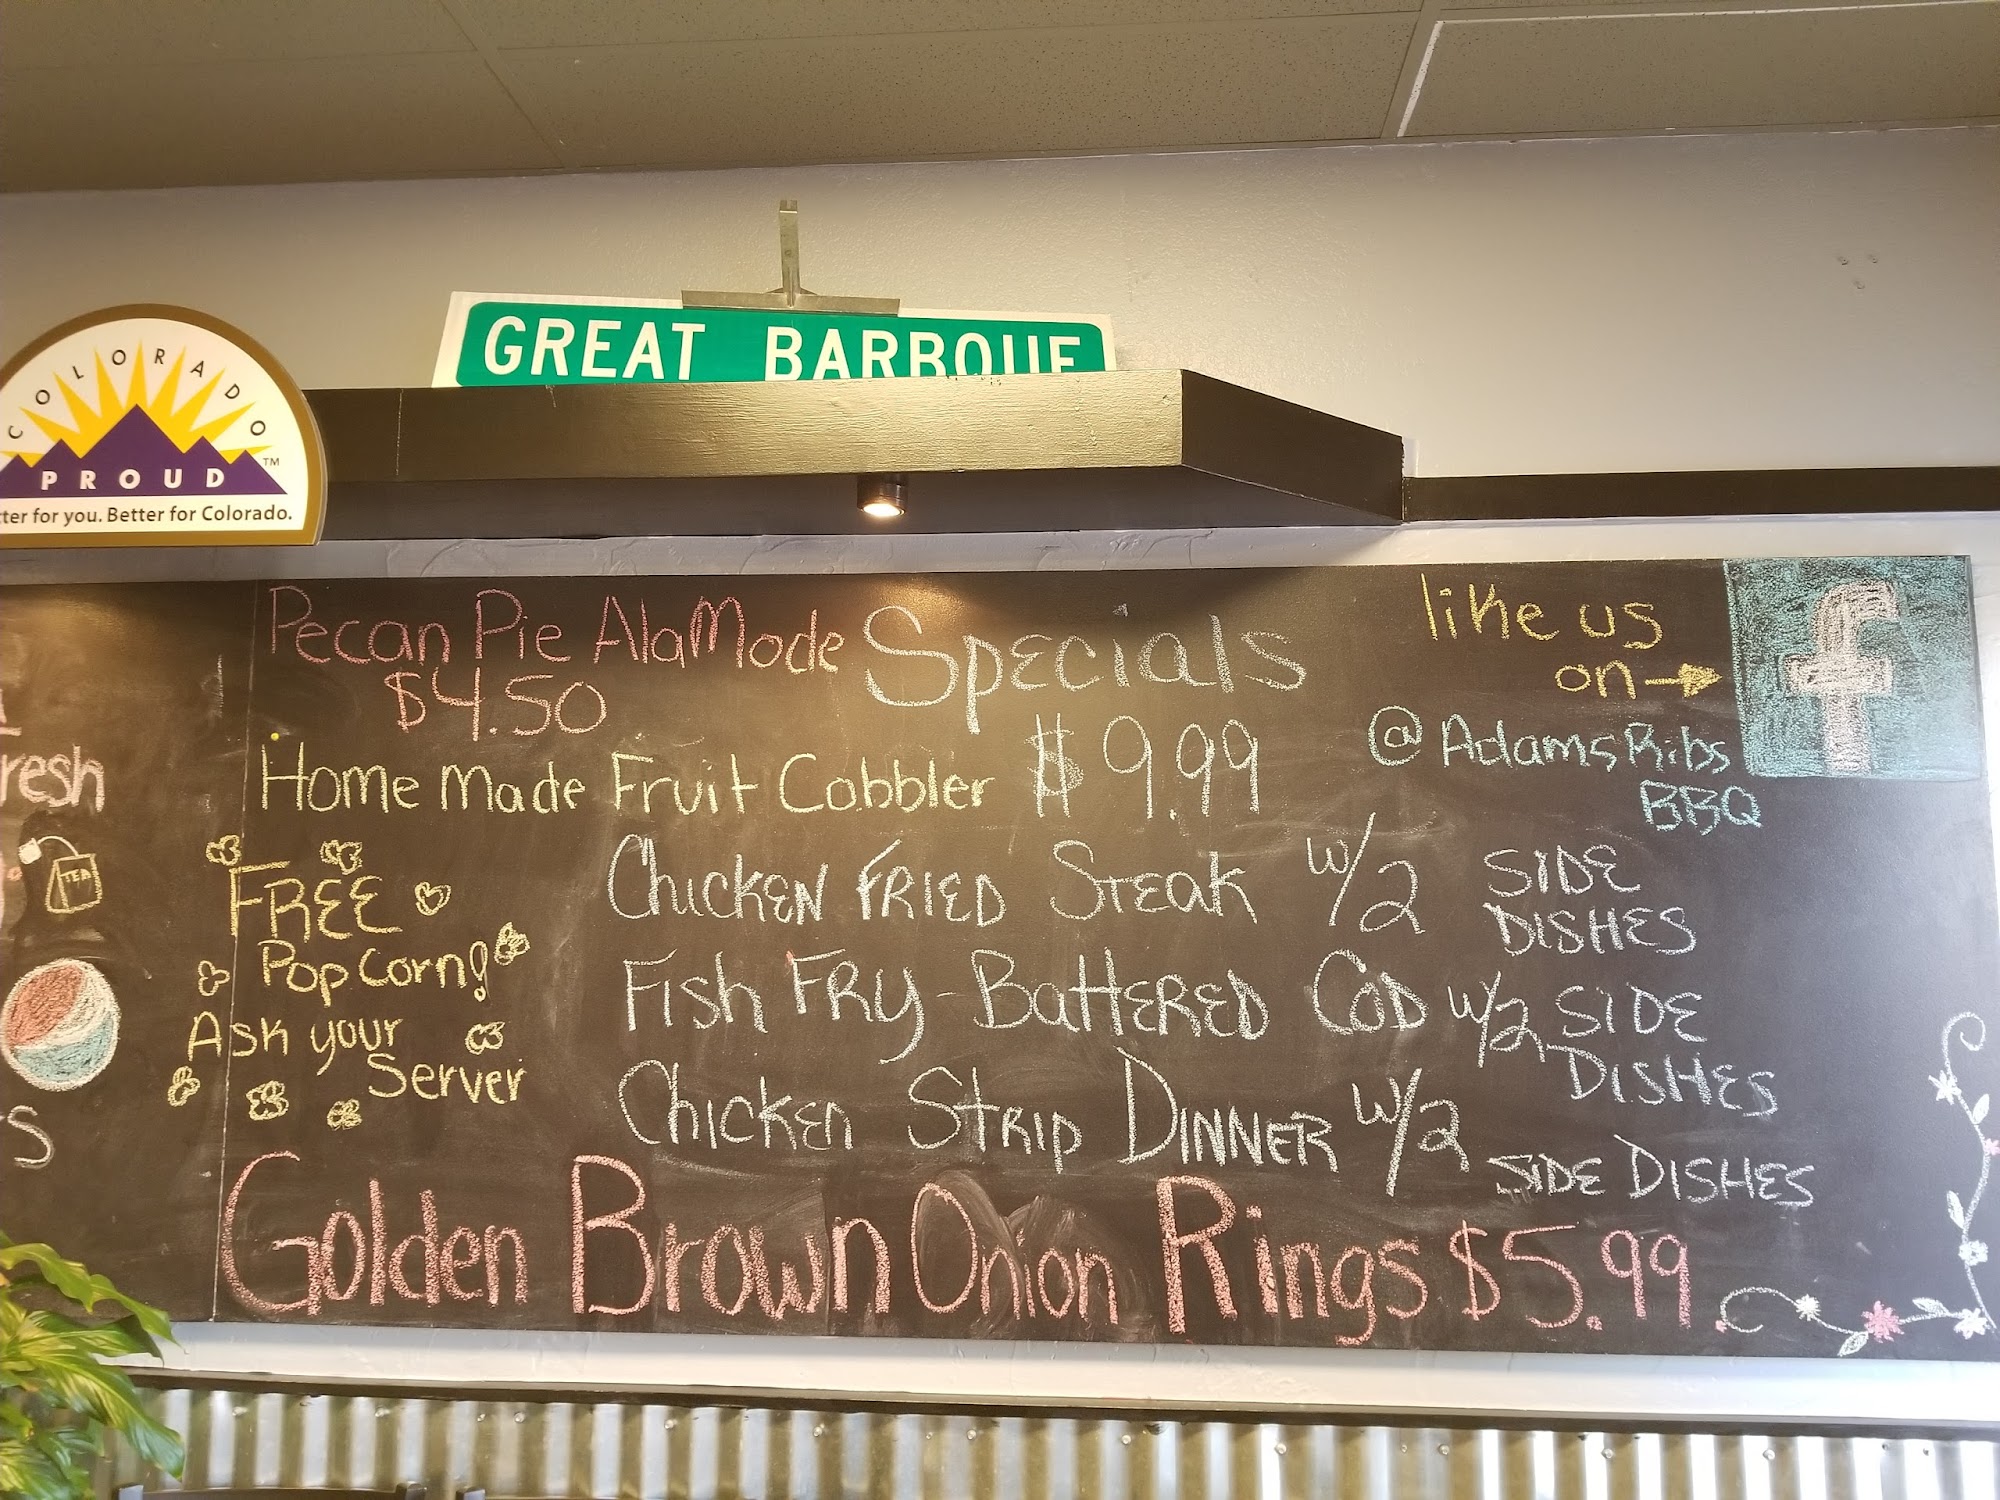 GREAT BARBQUE
COLORADO
PROUD™
for you. Better for Colorado.
Pecan Pie AlaMode
$4.50
Home Made Fruit Cobbler
FREE
Pop Corn!
Ask your
Server
Specials
$9.99
Chicken Fried Steak w/2 Side
Dishes
Fish Fry - Battered Cod w/2 Side
Dishes
Chicken Strip Dinner w/2
Side Dishes
Golden Brown Onion Rings $5.99
like us
on
f
@AdamsRibs
BBQ
resh
TEA
S